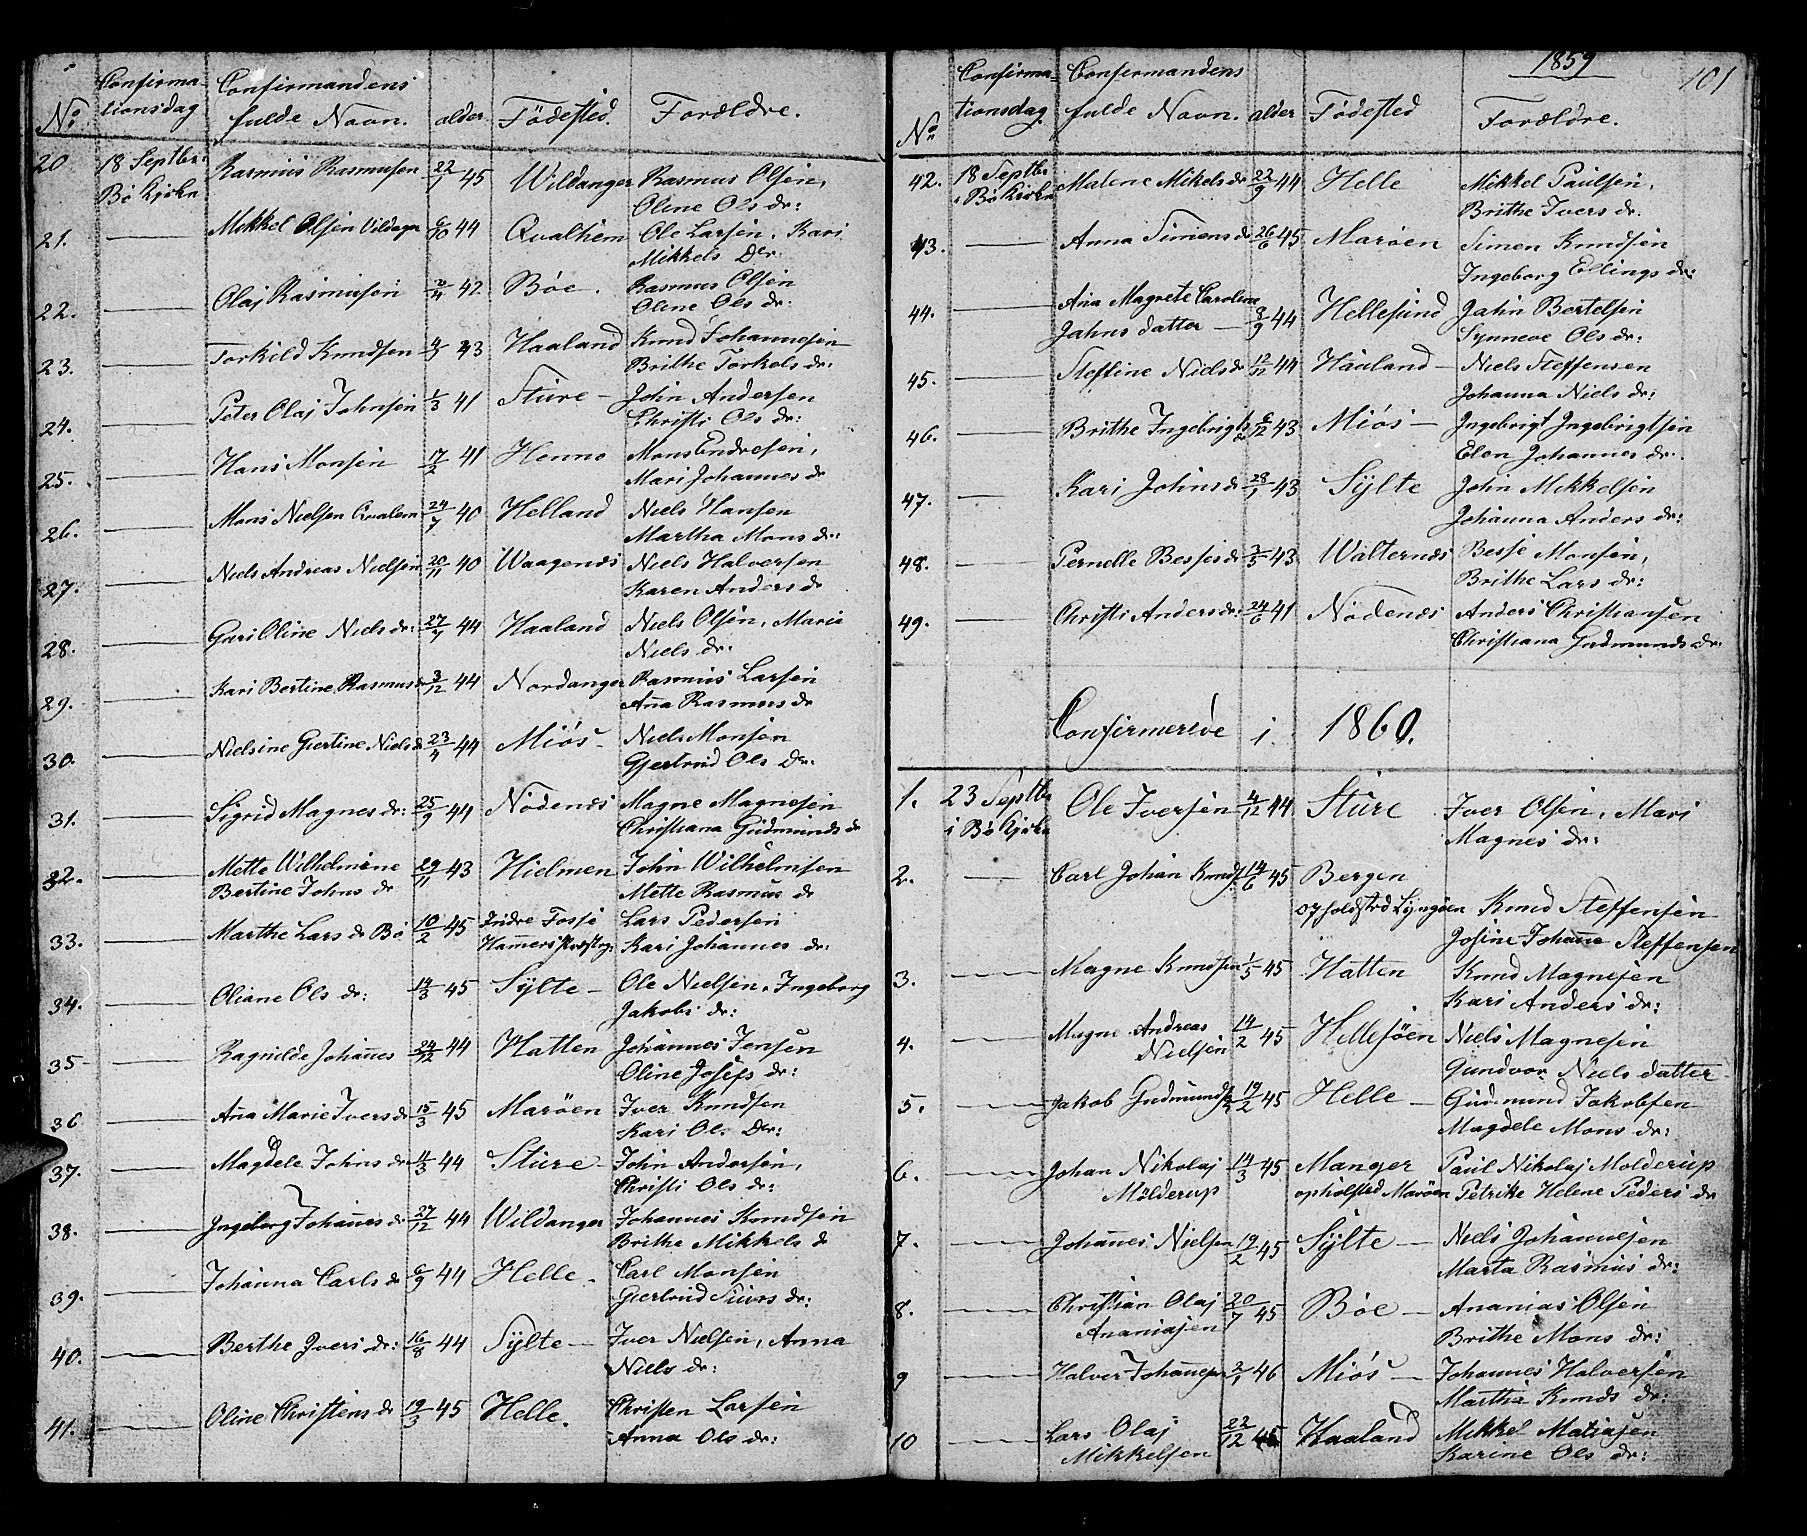 No: Confirmationsdag Confirmandens fulde Navn. alder. Födested. Forældre.
20 18 Septbr: Bö Kjirke Rasmus Rasmusen 22/1 45 Wildanger Rasmus Olsen,
Oline Ols dr:
21. Mikkel Olsen Vildager 6/10 44 Qvalhem Ole Larsen, Kari
Mikkels Dr:
22. Olaj Rasmusen 2/4 42 Böe. Rasmus Olsen
Oline Ols dr:
23. Torkild Knudsen 43 Haaland Knud Johannesen
Brithe Torkels dr:
24. Peter Olaj Johnsen 1/3 41 Sture John Andersen
Christi Ols dr:
25. Hans Monsen 17/2 41 Henne Mons Endresen,
Mari Johannes dr
26. Mons Nielsen Qvalem 24/7 40 Helland Niels Hansen
Martha Mons dr:
27. Niels Andreas Nielsen 20/11 40 Waagenes Niels Halversen
Karen Anders dr
28. Guri Oline Niels dr: 44 Haaland Niels Olsen, Marie
Niels dr:
29. Kari Bertine Rasmus dr 3/12 44 Nordanger Rasmus Larsen
Ana Rasmus dr
30. Nielsine Giertine Niels dr 23/4 44 Miös Niels Monsen
Gjertrud Ols Dr:
31. Sigrid Magnes dr: 25/9 44 Nödenes Magne Magnesen
Christiana Gudmunds dr
32. Mette Wilhelmine 29/11 43 Hielmen John Wilhelmsen
Bertine Johns dr Mette Rasmus dr
33. Marthe Lars dr Bö 10/2 45 Indre Fosse Lars Pedersen
Hammers Kari Johannes dr:
34. Oliane Ols dr: 14/3 45 Sylte Ole Nielsen, Ingeborg
Jakobs dr:
35 Ragnilde Johannes 24/12 44 Hatten Johannes Jensen
Oline Josefs dr:
36 Ana Marie Ivers dr 15/3 45 Maröen Iver Knudsen
Kari Ols Dr:
37. Magdele Johns dr 11/3 44 Sture John Andersen,
Christi Ols dr:
38. Ingeborg Johannes dr 27/12 44 Wildanger Johannes Knudsen
Brithe Mikkels dr
39. Johanna Carls dr 6/9 44 Helle Carl Monsen
Giertrud Siurs dr:
40. Berthe Ivers dr: 16/8 44 Sylte Iver Nielsen, Anna
Niels dr:
41. Oline Christens dr 19/3 45 Helle. Christen Larsen
Anna Ols dr:
1859
101
No: Confirmationsdag. Confirmandens fulde Navn. alder Födested Forældre.
42. 18 Septbr i Bö Kirke Malene Mikels dr 22/9 44 Helle Mikkel Paulsen,
Brithe Ivers dr.
43. Anna Simens dr 26/6 45 Maröen Simen Knudsen
Ingeborg Ellings dr:
44. Ana Magrete Caroline 8/9 44 Hellesund Jahn Bertelsen
Jahns datter Synneve Ols dr:
45. Steffine Niels dr 44 Haaland Niels Steffensen
Johanna Niels dr:
46. Brithe Ingebrigts dr 6/12 43 Miös Ingebrigt Ingebrigtsen
Elen Johannes dr.
47. Kari Johns dr 28/1 43 Sylte John Mikkelsen
Johanna Anders dr:
48. Pernelle Besses dr 43 Walternes Besse Monsen,
Brithe Lars dr:
49. Christi Anders dr: 24/6 41 Nödenes Anders Christiansen
Christiana Gudmunds dr:
Confirmerede i 1860.
1. 23 Septbr i Bö Kjirke Ole Iversen 4/12 44 Sture Iver Olsen, Mari
Magnes dr:
2. Carl Johan Knuds 14/6 45 Bergen
opholdsted Lyngöen Knud Steffensen
Josine Johanne Steffensen
3. Magne Knudsen 1/5 45 Hatten Knud Magnesen
Kari Anders dr:
4. Magne Andreas 14/2 45 Hellesöen Niels Magnesen
Nielsen Gundvor Niels datter
5. Jakob Gudmunds 19/2 45 Helle Gudmund Jakobsen
Magdele Mons dr:
6. Johan Nikolaj 14/3 45 Manger Paul Nikolaj Molderup
Mölderup opholsted Maröen Petrikke Helene Peders dr
7. Johannes Nielsen 19/2 45 Sylte Niels Johannesen
Marta Rasmus dr:
8. Christian Olaj 20/7 45 Böe Ananias Olsen
Ananiasen Brithe Mons dr:
9 Halver Johannesen 2/1 46 Miös Johannes Halversen
Martha Knuds dr:
10 Lars Olaj 22/12 45 Haaland Mikkel Matiasen
Mikkelsen Karine Ols dr: